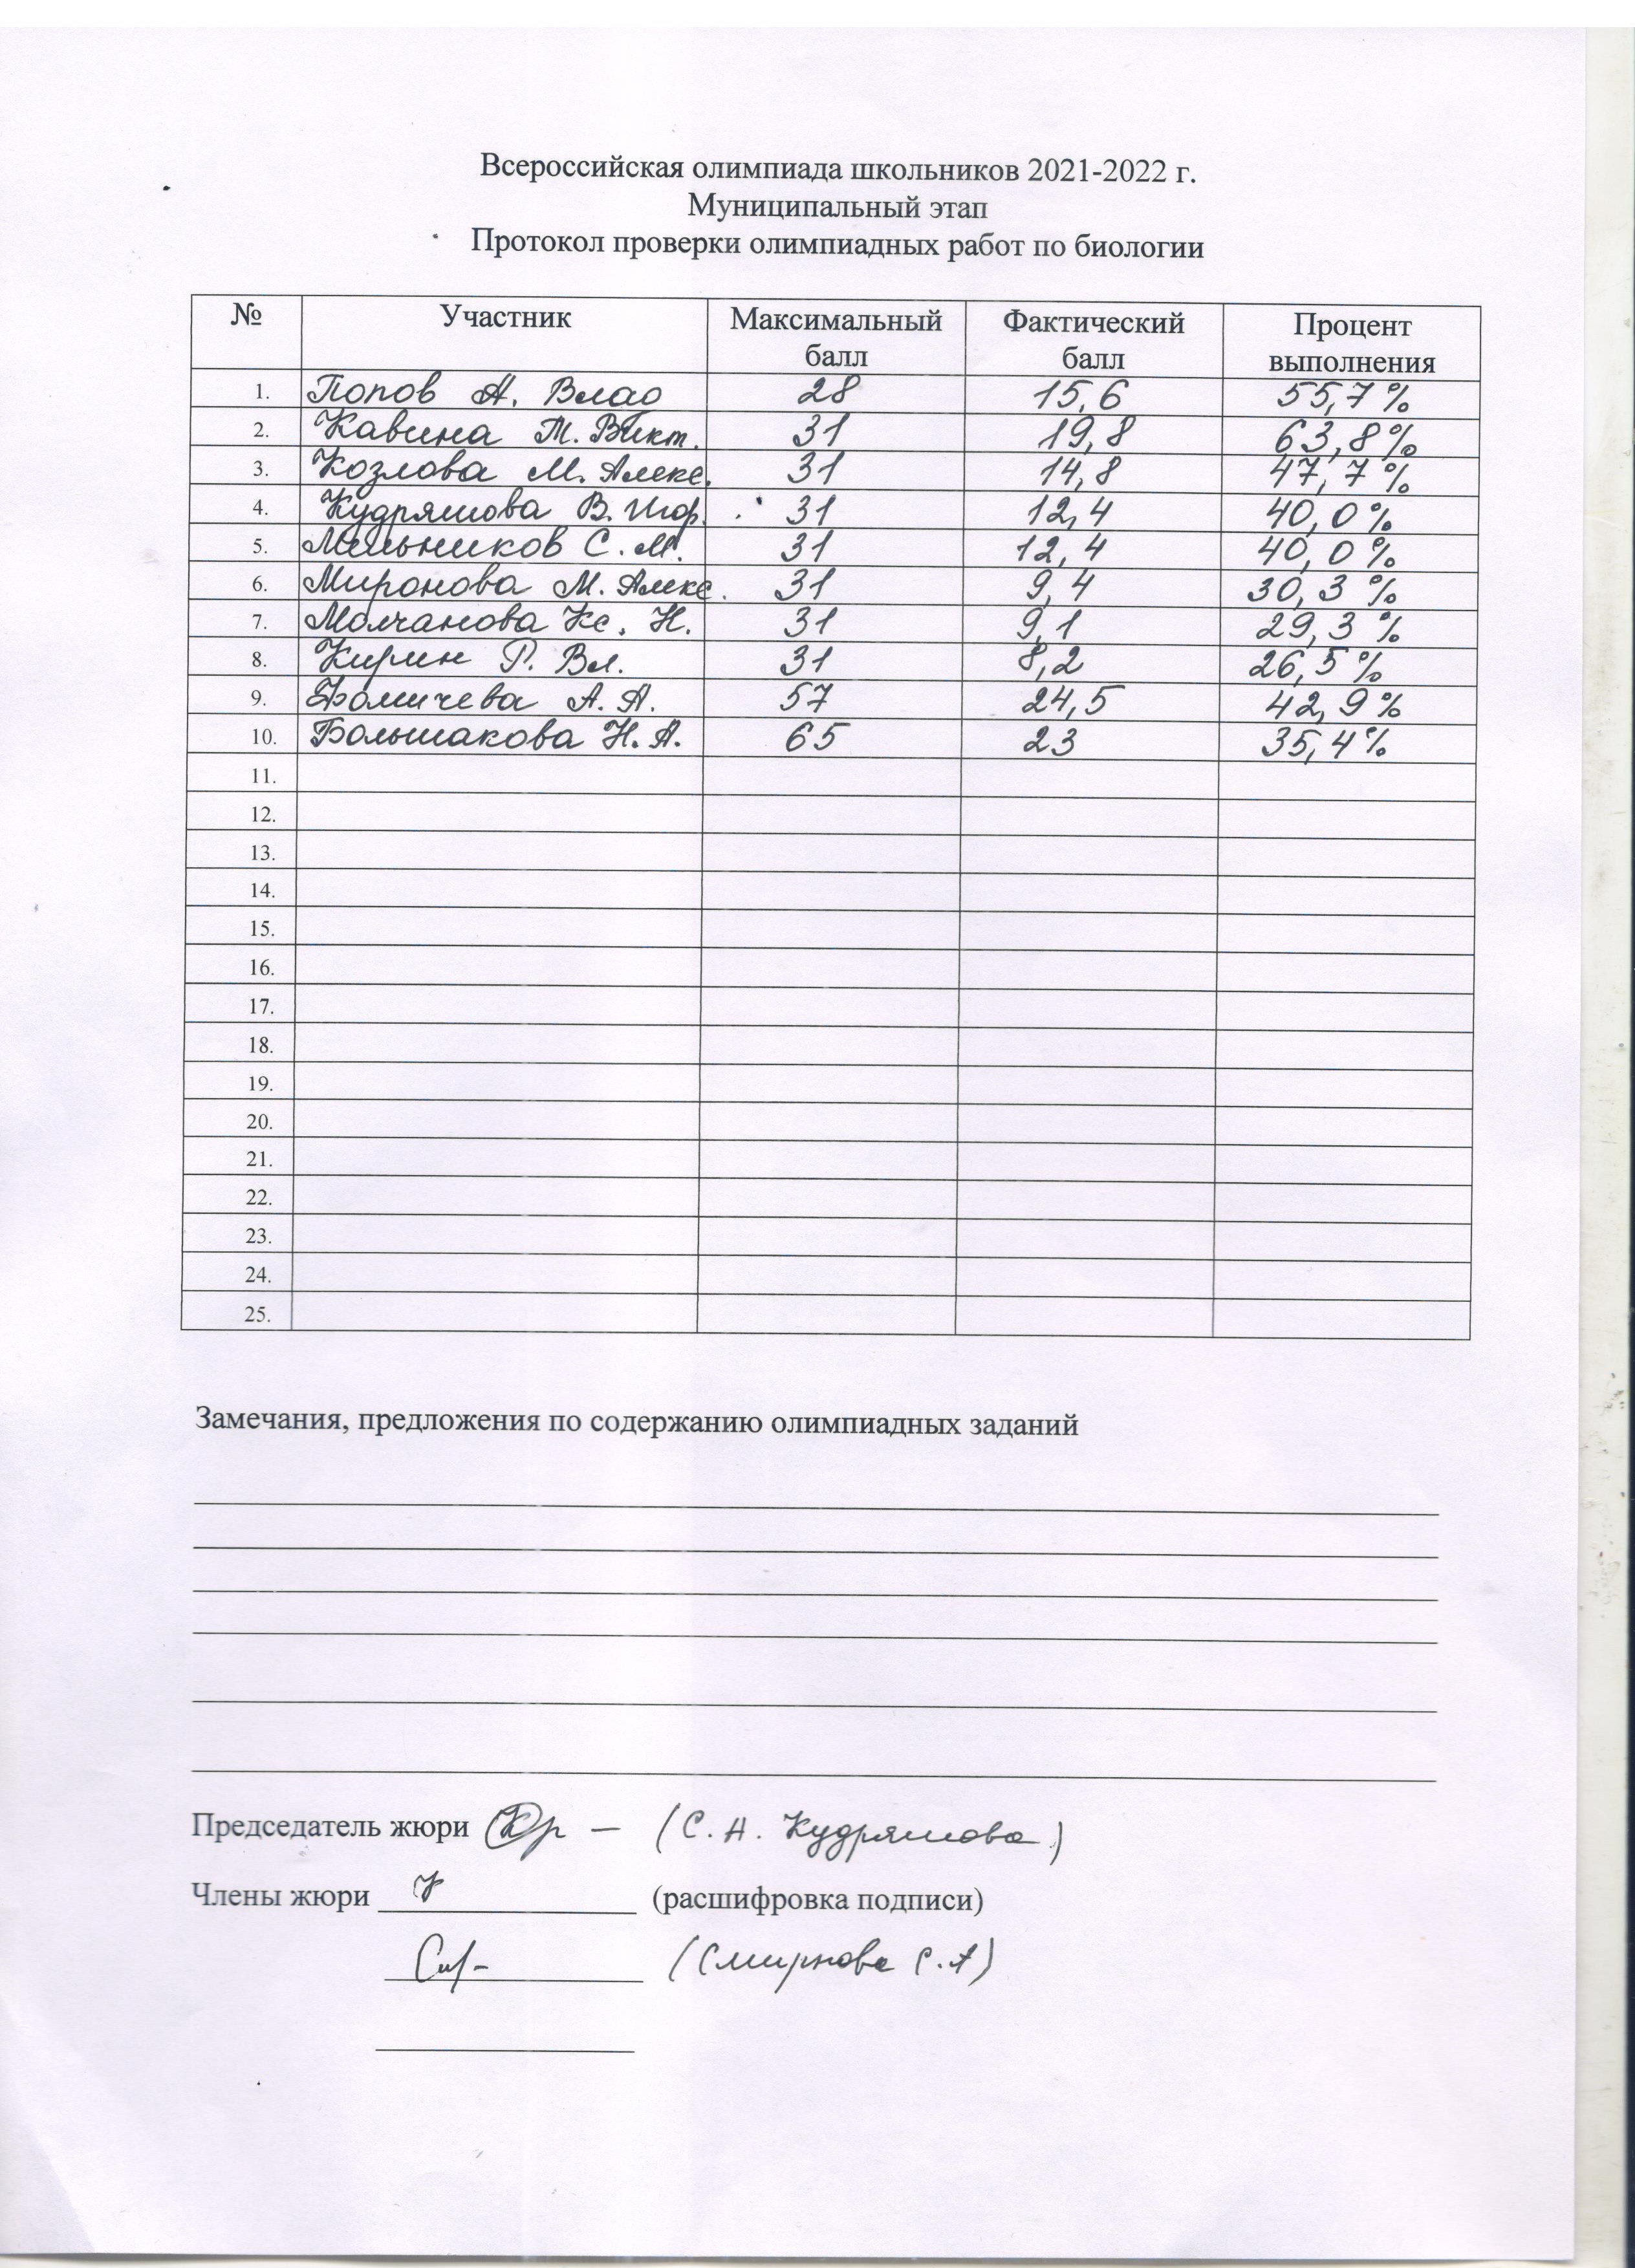 Всероссийская олимпиада школьников 2021-2022 г.
Муниципальный этап
Протокол проверки олимпиадных работ по биологии
№ Участник Максимальный балл Фактический балл Процент выполнения
1. Попов А. Влад 28 15,6 55,7%
2. Кавина М. Викт. 31 19,8 63,8%
3. Козлова М. Алекс. 31 14,8 47,7%
4. Кудряшова В. Игор. 31 12,4 40,0%
5. Мельников С. М. 31 12,4 40,0%
6. Миронова М. Алекс. 31 9,4 30,3%
7. Молчанова Кс. Н. 31 9,1 29,3%
8. Кирин Р. Вл. 31 8,2 26,5%
9. Фомичева А. А. 57 24,5 42,9%
10. Большакова Н. А. 65 23 35,4%
11.
12.
13.
14.
15.
16.
17.
18.
19.
20.
21.
22.
23.
24.
25.
Замечания, предложения по содержанию олимпиадных заданий
Председатель жюри (С. А. Кудряшова)
Члены жюри (расшифровка подписи)
(Смирнова С.А)